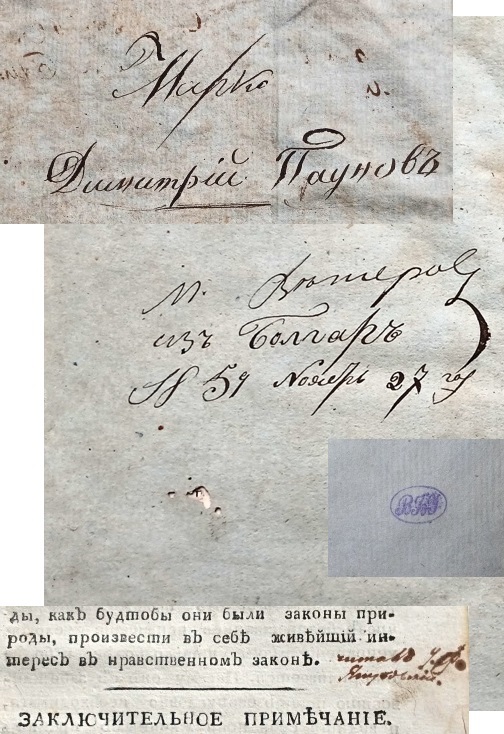 Марко
Димитрій Пауновъ
М.
изъ Болгаръ
1859 Ноябрь 27
ды, какъ будтобы они были законы при-
роды, произвести въ себѣ живѣйшій ин-
тересъ въ нравственномъ законѣ. читавъ
ЗАКЛЮЧИТЕЛЬНОЕ ПРИМѢЧАНІЕ.